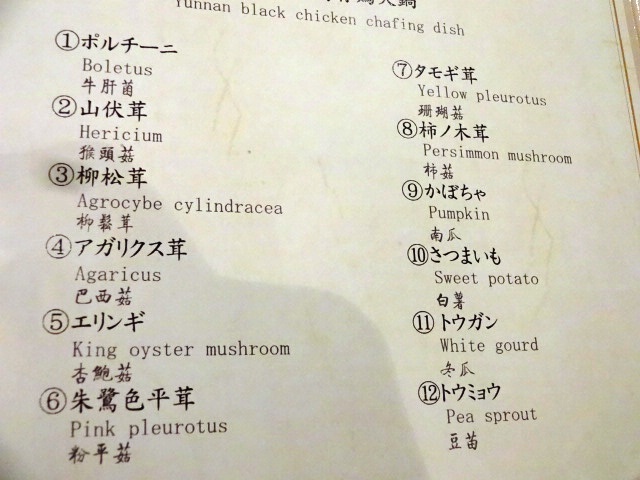 Yunnan black chicken chafing dish
①ポルチーニ
Boletus
牛肝菌
②山伏茸
Hericium
猴頭菇
③柳松茸
Agrocybe cylindracea
柳鬆茸
④アガリクス茸
Agaricus
巴西菇
⑤エリンギ
King oyster mushroom
杏鮑菇
⑥朱鷺色平茸
Pink pleurotus
粉平菇
⑦タモギ茸
Yellow pleurotus
珊瑚菇
⑧柿ノ木茸
Persimmon mushroom
柿菇
⑨かぼちゃ
Pumpkin
南瓜
⑩さつまいも
Sweet potato
白薯
⑪トウガン
White gourd
冬瓜
⑫トウミョウ
Pea sprout
豆苗